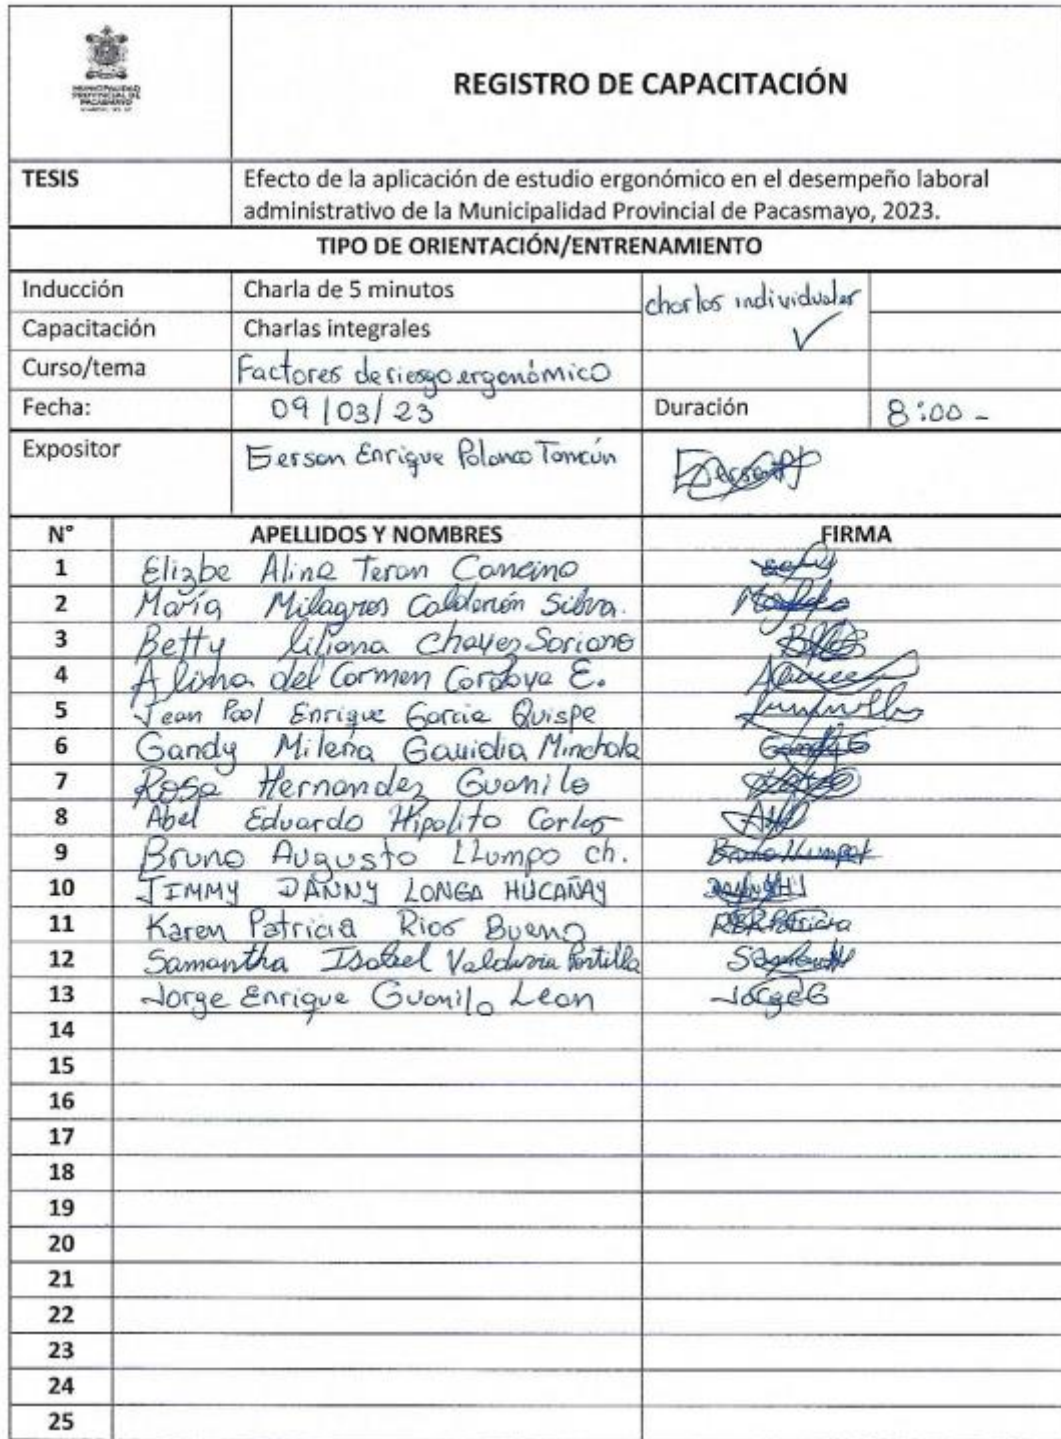 MUNICIPALIDAD
PROVINCIAL DE
PACASMAYO
REGISTRO DE CAPACITACIÓN
TESIS
Efecto de la aplicación de estudio ergonómico en el desempeño laboral
administrativo de la Municipalidad Provincial de Pacasmayo, 2023.
TIPO DE ORIENTACIÓN/ENTRENAMIENTO
Inducción Charla de 5 minutos charlas individuales
Capacitación Charlas integrales ✓
Curso/tema Factores de riesgo ergonómico
Fecha: 09/03/23 Duración 8:00 -
Expositor Enrique Polanco
N° APELLIDOS Y NOMBRES FIRMA
1 Elizbe Alina Teran Cancino
2 María Milagros Calderón Silva.
3 Betty Liliana Chavez Soriano
4 del Carmen Cordova E.
5 Jean Pool Enrique Garcia Quispe
6 Gandy Milena Gavidia Minchola Gandy G
7 Rosa Hernandez Guanilo
8 Abel Eduardo Hipolito Carlos
9 Bruno Augusto LLumpo ch. Bruno Llumpo
10 JIMMY DANNY LONGA HUCAÑAY
11 Karen Patricia Rios Bueno Patricia
12 Samantha Isabel Portilla
13 Jorge Enrique Guanilo Leon Jorge G
14
15
16
17
18
19
20
21
22
23
24
25